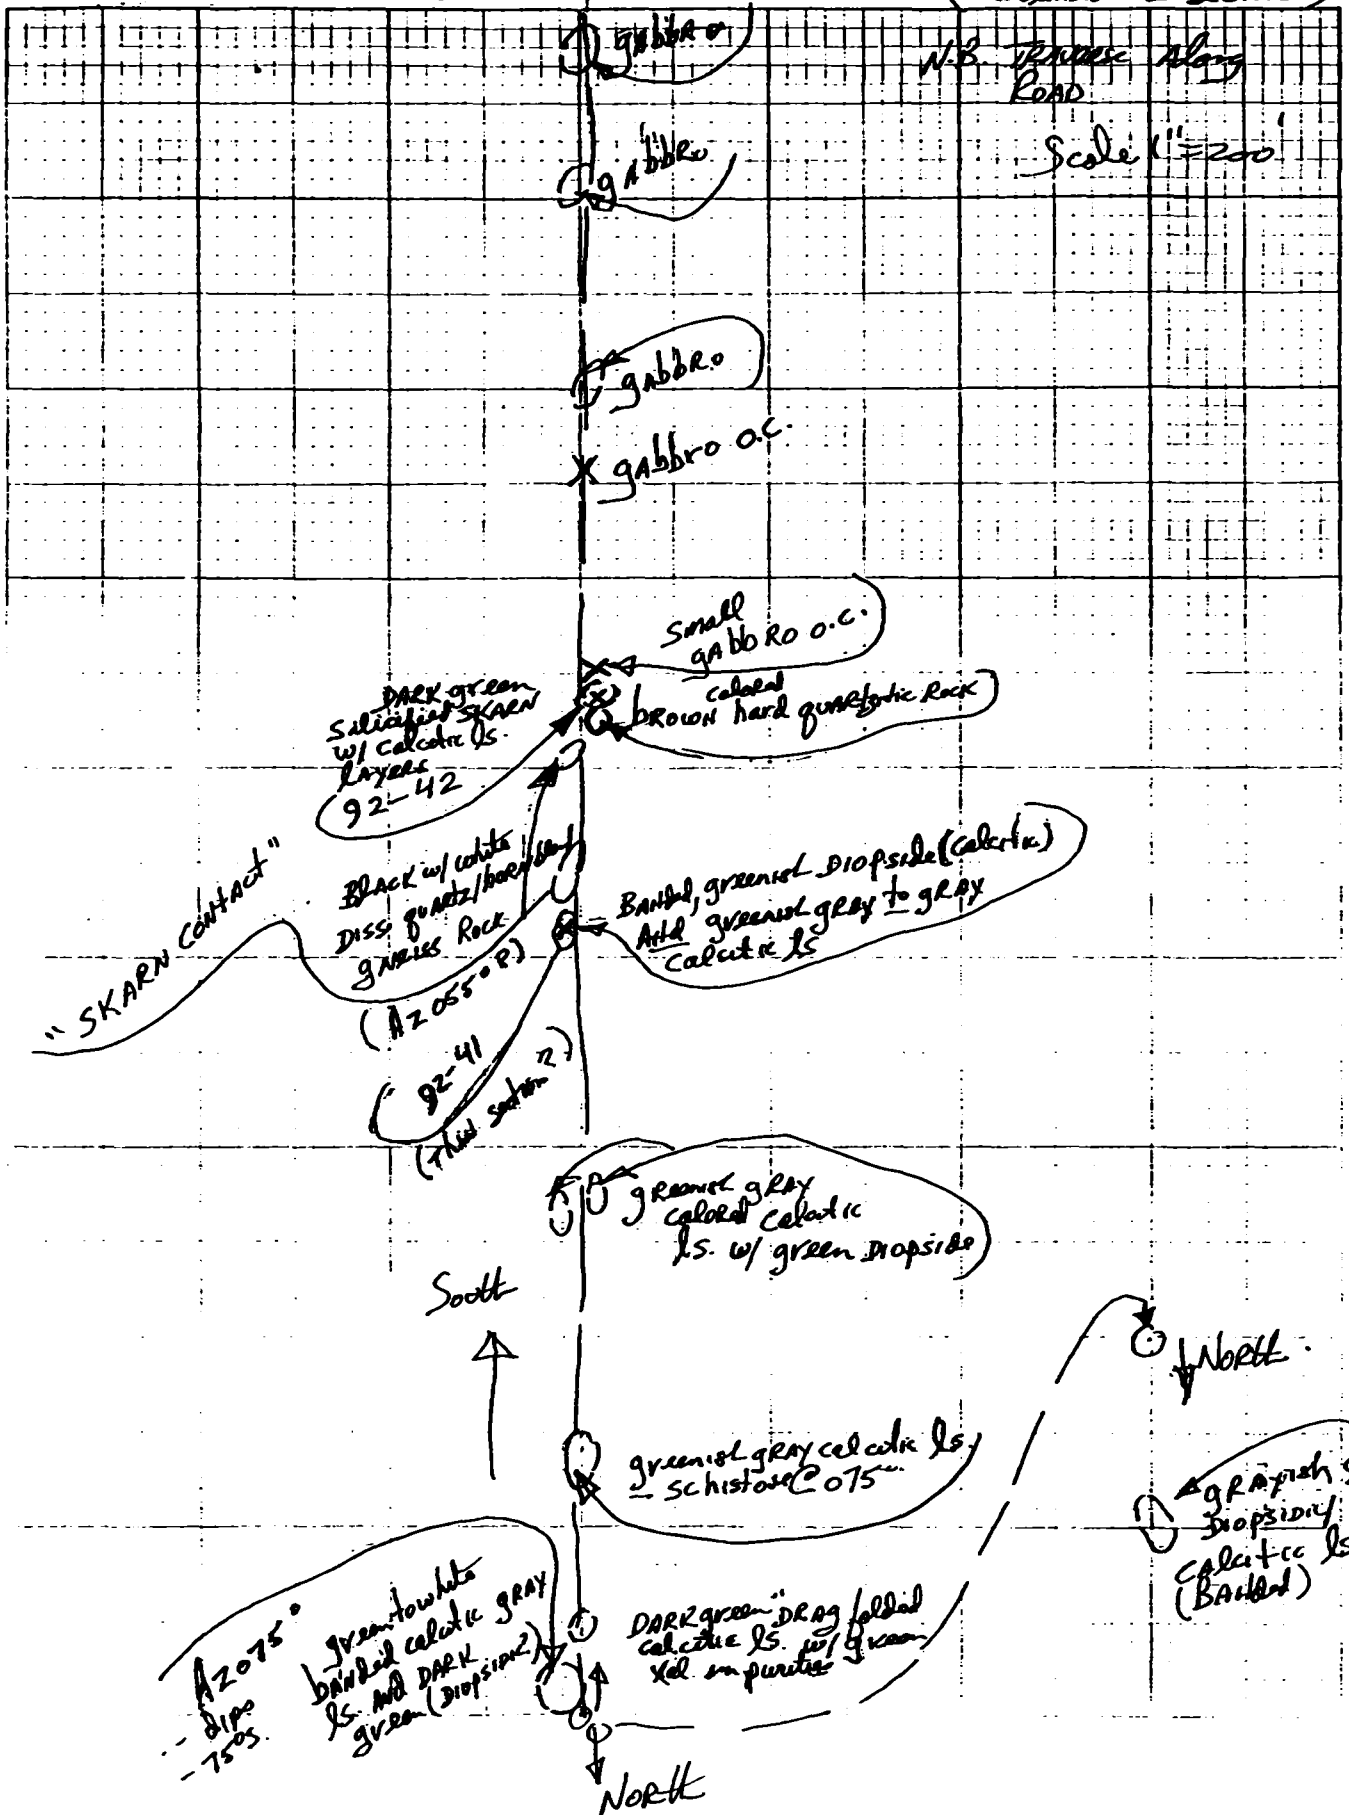 gAbbRo
N.B. Traverse Along
ROAD
Scale 1"=200'
gAbbRo
gAbbRo
gAbbro o.c.
Small
gAbbRo o.c.
colored
bROWN hard quartzitic Rock
DARK green
Silicified SKARN
w/ calcitic ls.
layers
92-42
"SKARN CONTACT"
BLACK w/ white
Diss. quartz/hornblend
gneiss Rock
(Az 055° ?)
Banded, greenish Diopside (calcitic)
And greenish gray to gRAY
calcitic ls
92-41
(Thin section ?)
greenish gRAY
colored calcitic
ls. w/ green Diopside
South
NORth
greenish gRAY calcitic ls.
- schistose @ 075°
gRAyish
Diopsidic/
calcitic ls
(BAnded)
Az 075°
- dips
- 75°S.
green to white
banded calcitic gRAY
ls. And DARK
green (Diopside?)
DARK green "DRAg folded
calcitic ls. w/ green
xal impurities
NORth